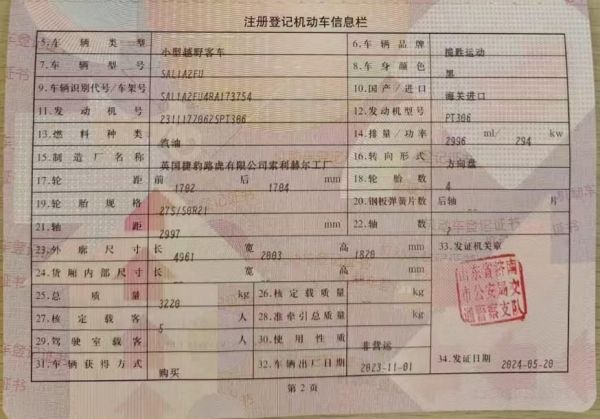 注册登记机动车信息栏
5.车辆类型 小型越野客车 6.车辆品牌 揽胜运动
7.车辆型号 SAL1A2FU 8.车身颜色 黑
9.车辆识别代号/车架号 SAL1A2FU4RA173754 10.国产/进口 海关进口
11.发动机号 231117062SPT306 12.发动机型号 PT306
13.燃料种类 汽油 14.排量/功率 2996 ml/ 294 kw
15.制造厂名称 英国捷豹路虎有限公司索利赫尔工厂 16.转向形式 方向盘
17.轮距 前 1702 后 1704 mm 18.轮胎数 4
19.轮胎规格 275/50R21 20.钢板弹簧片数 后轴 片
21.轴距 2997 mm 22.轴数 2
23.外廓尺寸 长 4961 宽 2003 高 1820 mm 33.发证机关章
24.货厢内部尺寸 长 宽 高 mm
25.总质量 3220 kg 26.核定载质量 kg
27.核定载客 5 人 28.准牵引总质量 kg
29.驾驶室载客 人 30.使用性质 非营运
31.车辆获得方式 购买 32.车辆出厂日期 2023-11-01 34.发证日期 2024-05-20
山东省济南
市公安局交
通警察支队
第 2 页